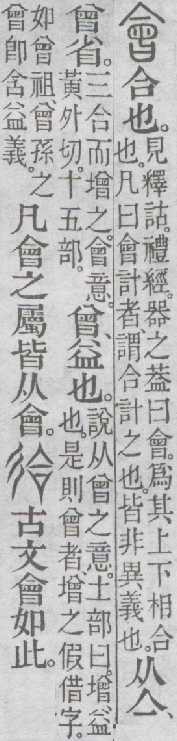 會合也。見釋詁。禮經。器之葢曰會。爲其上下相合
也。凡曰會計者謂合計之也。皆非異義也。从亼、
曾省。三合而增之。會意。
黃外切。十五部。曾、益也。說从曾之意。土部曰。增、益
也。是則曾者增之假借字。
如曾祖、曾孫。之
曾卽含益義。凡會之屬皆从會。㣛古文會如此。